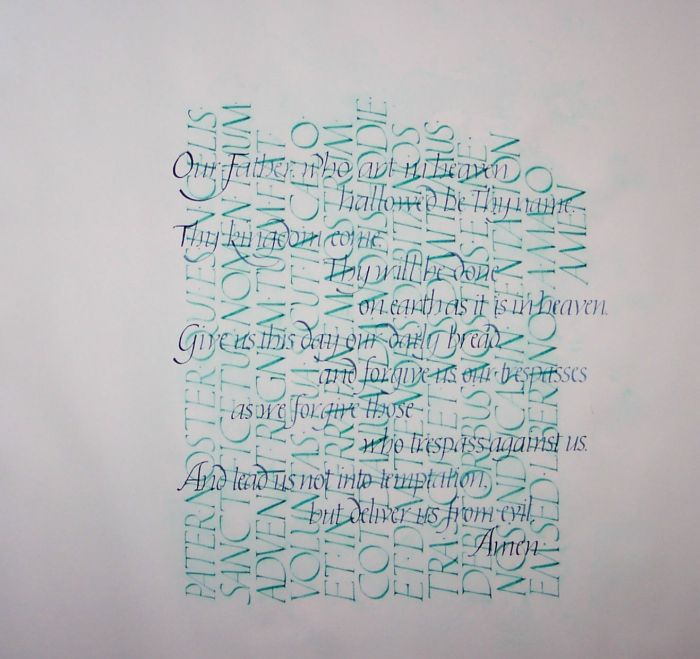 Our Father, who art in heaven
hallowed be Thy name.
Thy kingdom come.
Thy will be done
on earth as it is in heaven.
Give us this day our daily bread
and forgive us our trespasses
as we forgive those
who trespass against us.
And lead us not into temptation,
but deliver us from evil.
Amen
PATER NOSTER QUI ES IN CÆLIS
SANCTIFICETUR NOMEN TUUM
ADVENIAT REGNUM TUUM FIAT
VOLUNTAS TUA SICUT IN CÆLO
ET IN TERRA PANEM NOSTRUM
COTIDIANUM DA NOBIS HODIE
ET DIMITTE NOBIS DEBITA NOS
TRA SICUT ET NOS DIMITTIMUS
DEBITORIBUS NOSTRIS ET NE
NOS INDUCAS IN TENTATION
EM SED LIBERA NOS A MALO
AMEN